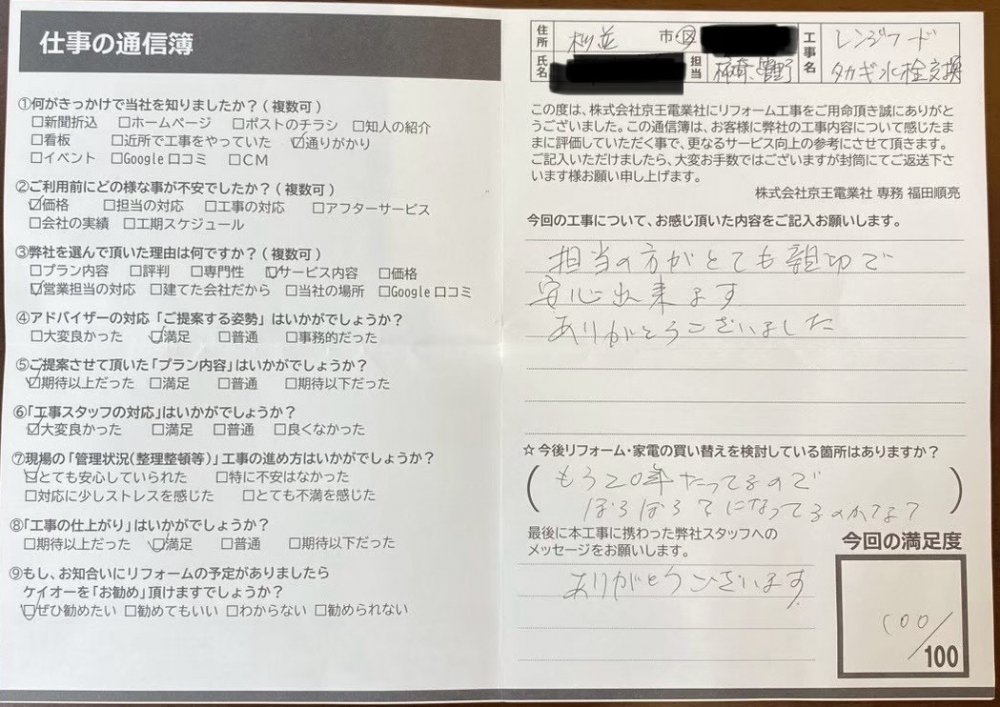 仕事の通信簿
①何がきっかけで当社を知りましたか?(複数可)
□新聞折込 □ホームページ □ポストのチラシ □知人の紹介
□看板 □近所で工事をやっていた ☑通りがかり
□イベント □Google口コミ □CM
②ご利用前にどの様な事が不安でしたか?(複数可)
☑価格 □担当の対応 □工事の対応 □アフターサービス
□会社の実績 □工期スケジュール
③弊社を選んで頂いた理由は何ですか?(複数可)
□プラン内容 □評判 □専門性 ☑サービス内容 □価格
☑営業担当の対応 □建てた会社だから □当社の場所 □Google口コミ
④アドバイザーの対応「ご提案する姿勢」はいかがでしょうか?
□大変良かった ☑満足 □普通 □事務的だった
⑤ご提案させて頂いた「プラン内容」はいかがでしょうか?
☑期待以上だった □満足 □普通 □期待以下だった
⑥「工事スタッフの対応」はいかがでしょうか?
☑大変良かった □満足 □普通 □良くなかった
⑦現場の「管理状況(整理整頓等)」工事の進め方はいかがでしょうか?
☑とても安心していられた □特に不安はなかった
□対応に少しストレスを感じた □とても不満を感じた
⑧「工事の仕上がり」はいかがでしょうか?
□期待以上だった ☑満足 □普通 □期待以下だった
⑨もし、お知合いにリフォームの予定がありましたら
ケイオーを「お勧め」頂けますでしょうか?
☑ぜひ勧めたい □勧めてもいい □わからない □勧められない
住所 杉並 市・区
氏名
担当
工事名 レンジフード
タカギ水栓交換
この度は、株式会社京王電業社にリフォーム工事をご用命頂き誠にありがと
うございました。この通信簿は、お客様に弊社の工事内容について感じたま
まに評価していただく事で、更なるサービス向上の参考にさせて頂きます。
ご記入いただけましたら、大変お手数ではございますが封筒にてご返送下さ
います様お願い申し上げます。
株式会社京王電業社 専務 福田順亮
今回の工事について、お感じ頂いた内容をご記入お願いします。
担当の方がとても親切で
安心出来ます
ありがとうございました
☆今後リフォーム・家電の買い替えを検討している箇所はありますか?
(もう20年たってるので
ぼろぼろ?になってるのかな?)
最後に本工事に携わった弊社スタッフへの
メッセージをお願いします。
ありがとうございます
今回の満足度
100/100